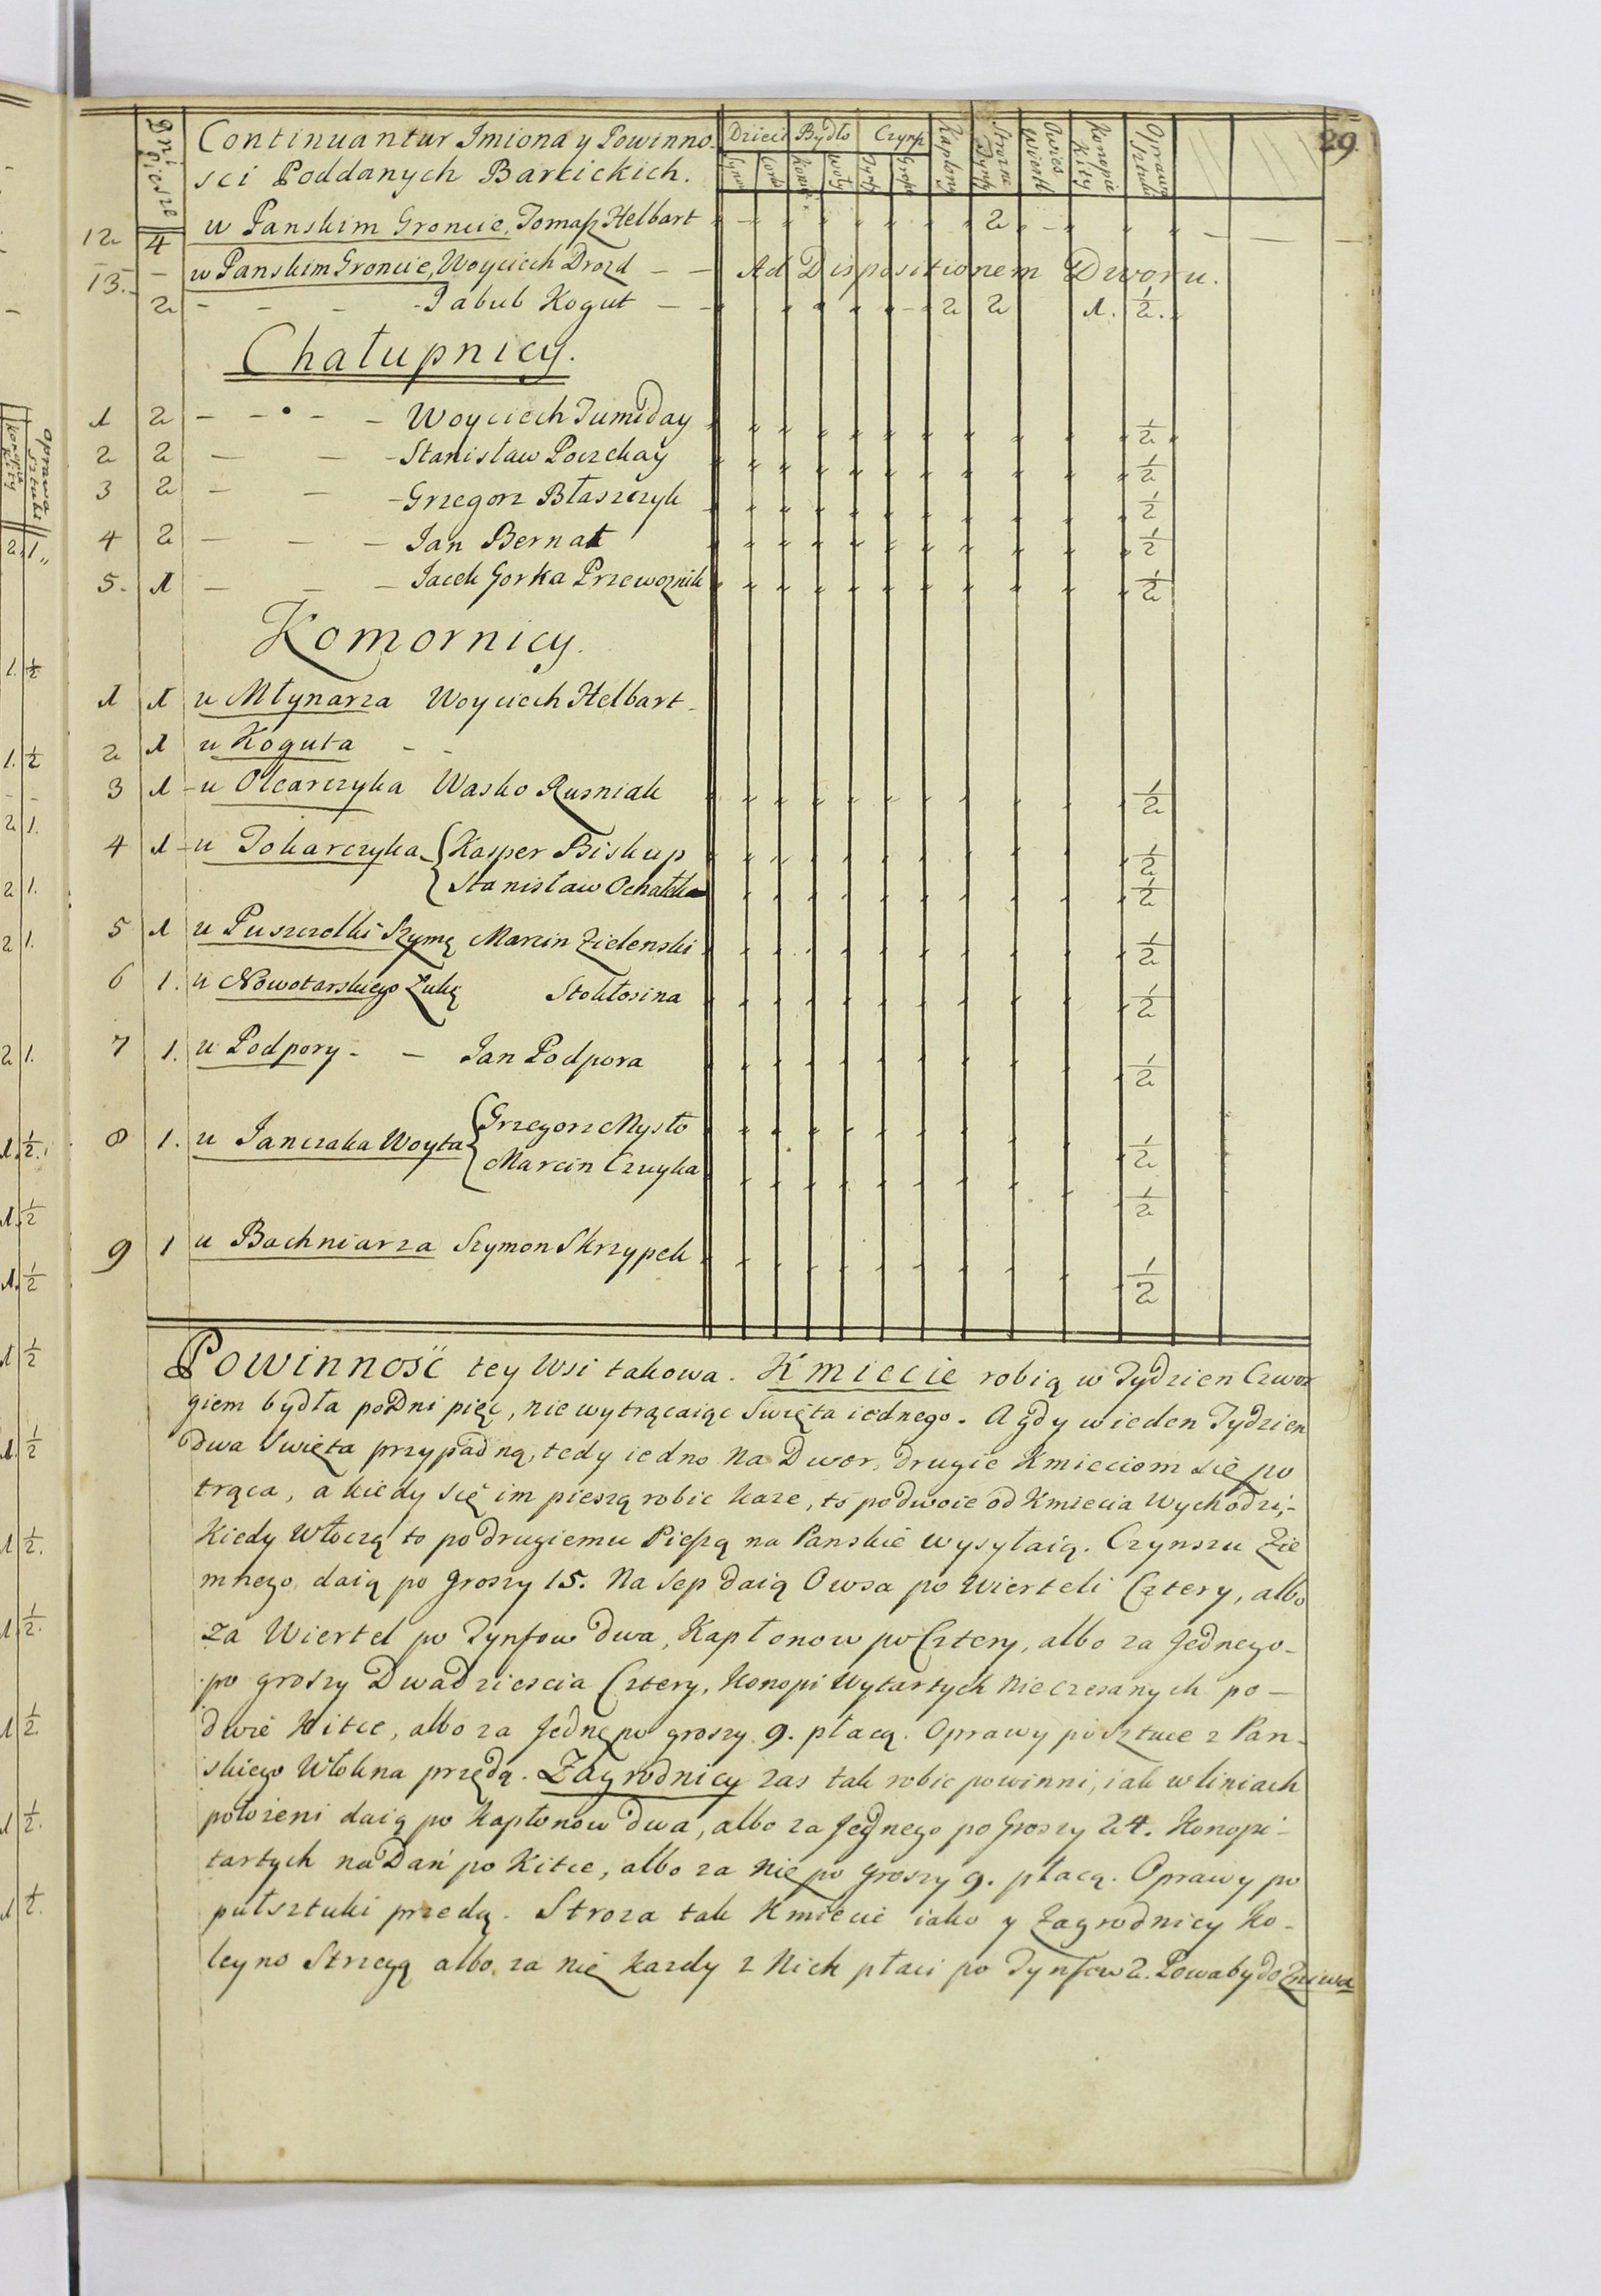 29.
Dni piesze
Continuantur Imiona y Powinno-
sci Poddanych Barcickich.
Dzieci Bydło Czynß Kapłony Stroza Tynfy Owies Wiertel Konopie Kity Oprawa sztuki
Synow Corek Konie Woły Tynfy Grosze
12 4 w Panskim Groncie, Tomaß Helbart 2
13. w Panskim Groncie, Woyciech Drozd Ad Dispositionem Dworu.
2 Jakub Kogut 2 2 1. 1/2.
Chałupnicy.
1 2 Woyciech Tumiday 1/2
2 2 Stanisław Poczekay 1/2
3 2 Grzegorz Błaszczyk 1/2
4 2 Jan Bernat 1/2
5. 1 Jacek Gorka Przewoznik 1/2
Komornicy.
1 1 u Młynarza Woyciech Helbart
2 1 u Koguta
3 1 u Olearczyka Wasko Rusniak 1/2
4 1 u Tokarczyka Kasper Biskup 1/2
Stanisław Ochałek 1/2
5 1 u Puszczołki Szymą Marcin Zielenski 1/2
6 1. u Nowotarskiego Stokłosina 1/2
7 1. u Podpory Jan Podpora 1/2
8 1. u Janczaka Woyta Grzegorz Mysło 1/2
Marcin Czuyka 1/2
9 1 u Bachniarza Szymon Skrzypek 1/2
Powinność tey Wsi takowa. Kmiecie robią w Tydzien Czwor
giem bydła po Dni pięc, nie wytrącaiąc Swięta iednego. A gdy w ieden Tydzien
dwa Swięta przypadną, tedy iedno na Dwor, drugie Kmieciom się po
trąca, a kiedy się im pieszą robic kaze, to podwoie od Kmiecia Wychodzi,-
Kiedy Włoczą to po drugiemu Pießą na Panskie wysyłaią. Czynszu Zie
mnego daią po groszy 15. Na Sep daią Owsa po Wierteli Cztery, albo
za Wiertel po Tynfow dwa, Kapłonow po Cztery, albo za Jednego-
po groszy Dwadziescia Cztery, Konopi Wytartych nie czesanych po-
dwie Kitce, albo za Jednę po groszy 9. płacą. Oprawy po sztuce z Pan-
skiego Włokna przędą. Zagrodnicy zas tak robic powinni, iak w liniach
położeni daią po Kapłonow dwa, albo za Jednego po Groszy 24. Konopi-
tartych na Dań po Kitce, albo za nię po Groszy 9. płacą. Oprawy po
pułsztuki przedą. Stroza tak Kmiecie iako y Zagrodnicy Ko-
leyno Strzegą albo za nię kazdy z Nich płaci po Tynfow 2. Powaby do Zniwa